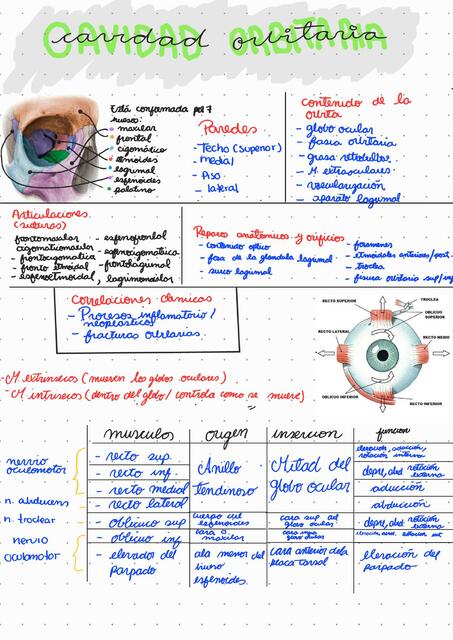 cavidad orbitaria
Está conformada por 7
huesos:
maxilar
frontal
cigomático
etmoides
lagrimal
esfenoides
palatino
Paredes
- Techo (Superior)
- Medial
- Piso
- lateral
Contenido de la
orbita
- globo ocular
- fascia orbitaria
- grasa retrobulbar
- M. extraoculares
- vascularización
- aparato lagrimal
Articulaciones
(suturas)
frontomaxilar
cigomaticomaxilar
- frontocigomatica
- fronto etmoidal
- esfenoetmoidal,
- esfenofrontal
- esfenocigomatica
- frontolagrimal
lagrimomaxilar
Reparos anatómicos y orificios
- conducto optico
- fosa de la glandula lagrimal
- surco lagrimal
- foramenes
- etmoidales anteriores/post.
- troclea
- fisura orbitaria sup/inf
Correlaciones clinicas
- Procesos inflamatorio/
neoplasticos
- fracturas orbitarias.
TRÓCLEA
RECTO SUPERIOR
OBLICUO
SUPERIOR
RECTO LATERAL
RECTO MEDIO
OBLICUO INFERIOR
RECTO INFERIOR
- M. extrinsecos (mueven los globos oculares)
- M intrisecos (dentro del globo/ controla como se mueve)
musculos
origen
insercion
funcion
nervio
oculomotor
- recto sup.
- recto inf.
- recto medial
n. abducens
- recto lateral
Anillo
tendinoso
Mitad del
globo ocular
elevacion, aduccion,
rotación interna
depre, abd rotación
externa
aducción
abducción
n. troclear
- oblicuo sup
cuerpo del
esfenoides
cara sup. del
globo ocular
depre, abd rotación
externa
nervio
oculomotor
- oblicuo inf
cara
maxilar
globo ocular
- elevador del
parpado
ala menor del
hueso
esfenoides.
cara anterior dela
placa tarsal
elevación del
parpado